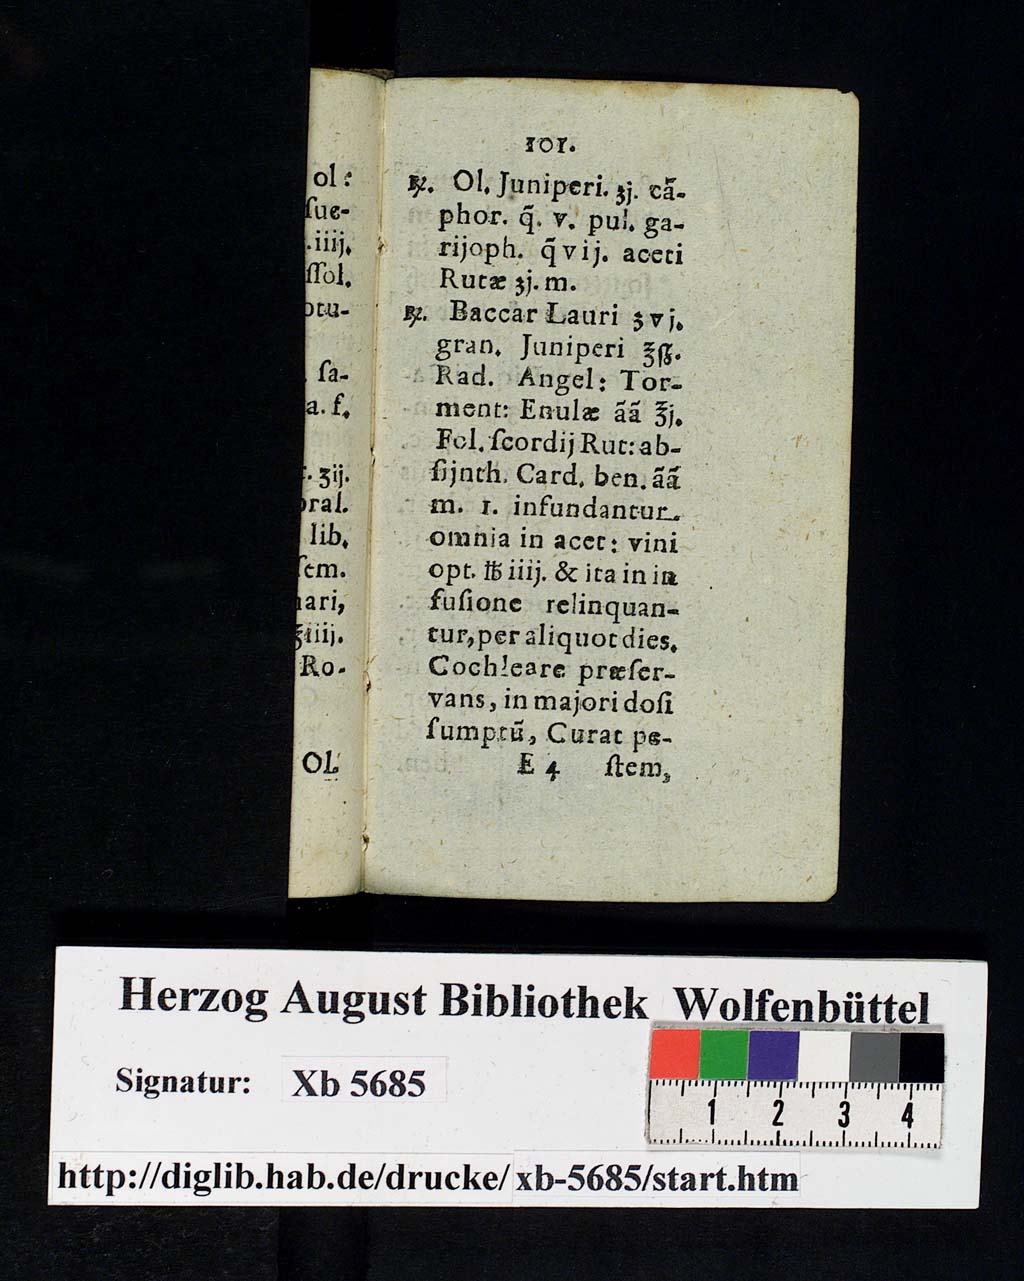 ol:
ſue-
.iiij.
ſſol.
ptu-
. ſa-
a. f.
. ʒij.
oral.
lib.
ſem.
nari,
ʒiiij.
Ro-
OL
101.
℞. Ol. Juniperi. ʒj. cã-
phor. q̃. v. pul. ga-
rijoph. q̃ vij. aceti
Rutæ ʒj. m.
℞. Baccar Lauri ʒvj.
gran. Juniperi ℥ß.
Rad. Angel: Tor-
ment: Enulæ ãã ℥j.
Fol. ſcordij Rut: ab-
ſijnth. Card. ben. ãã
m. 1. infundantur
omnia in acet: vini
opt. ℔ iiij. & ita in in
fuſione relinquan-
tur, per aliquot dies.
Cochleare præſer-
vans, in majori doſi
ſumptũ, Curat pe-
E 4 ſtem,
Herzog August Bibliothek Wolfenbüttel
Signatur: Xb 5685
1 2 3 4
http://diglib.hab.de/drucke/xb-5685/start.htm